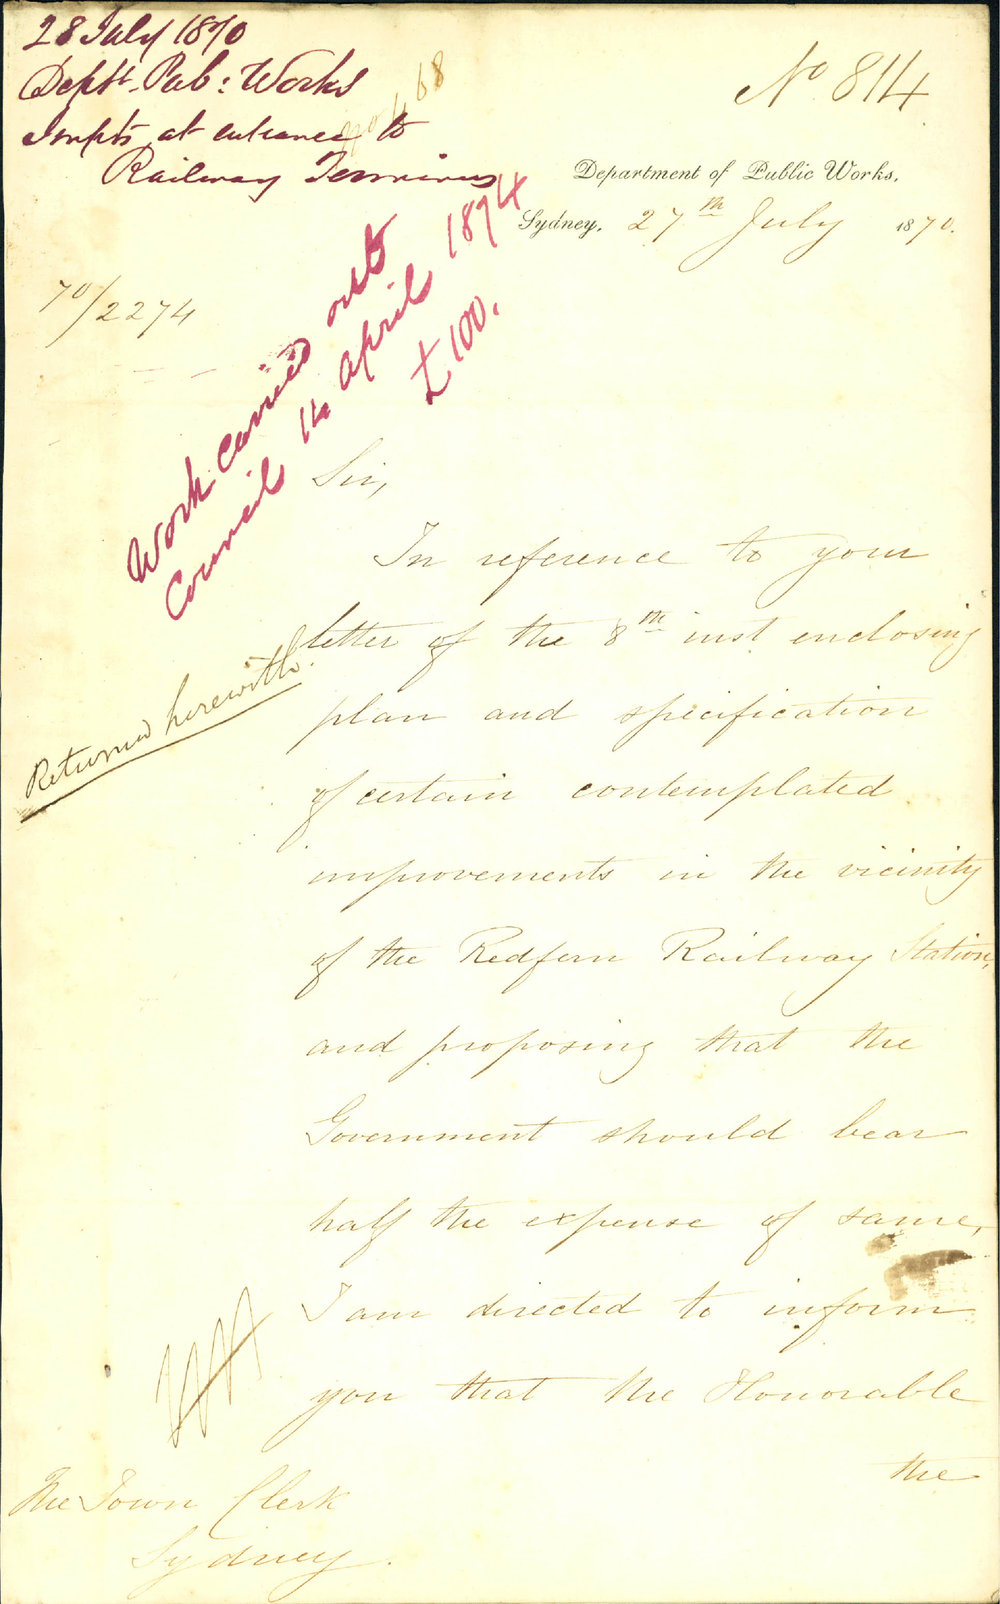 28 July 1870
Deptt. Pub: Works
Impts at entrance to
Railway Terminus
No 814
Department of Public Works,
Sydney, 27th July 1870.
70/2274
Work carried out
Council 14 April 1874
£100.
Sir,
In reference to your
letter of the 8th inst enclosing
Returned herewith.
plan and specification
of certain contemplated
improvements in the vicinity
of the Redfern Railway Station,
and proposing that the
Government should bear
half the expense of same,
I am directed to inform
you that the Honorable
the
The Town Clerk
Sydney.